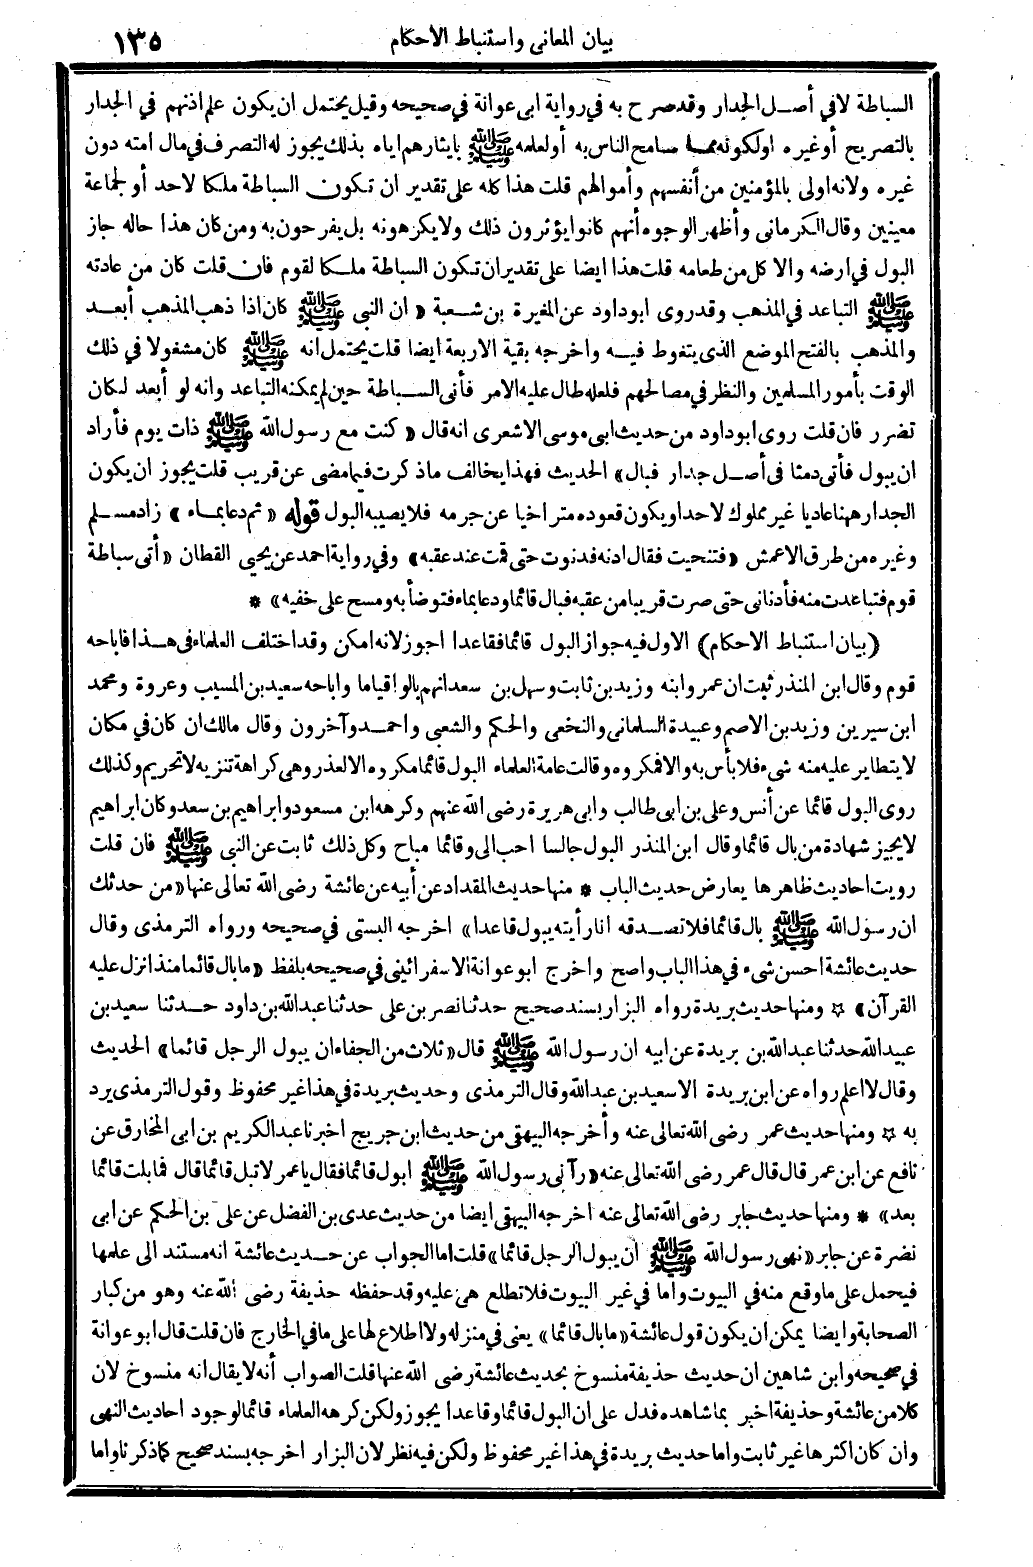 بيان المعانى واستنباط الاحكام ١٣٥
السباطة لافي أصل الجدار وقد صرح به في رواية ابى عوانة في صحيحه وقيل يحتمل ان يكون علم اذنهم في الجدار
بالتصريح أو غيره اولكونه مما سامح الناس به أولعلمه ﷺ بايثارهم اياه بذلك يجوز له التصرف في مال امته دون
غيره ولانه اولى بالمؤمنين من أنفسهم وأموالهم قلت هذا كله على تقدير ان تكون السباطة ملكا لاحد أو لجماعة
معينين وقال الكرمانى وأظهر الوجوه أنهم كانوا يؤثرون ذلك ولا يكرهونه بل يفرحون به ومن كان هذا حاله جاز
البول في ارضه والاكل من طعامه قلت هذا ايضا على تقدير ان تكون السباطة ملكا لقوم فان قلت كان من عادته
ﷺ التباعد في المذهب وقد روى ابوداود عن المغيرة بن شعبة «ان النبى ﷺ كان اذا ذهب المذهب أبعد
والمذهب بالفتح الموضع الذى يتغوط فيه واخرجه بقية الاربعة ايضا قلت يحتمل انه ﷺ كان مشغولا في ذلك
الوقت بأمور المسلمين والنظر في مصالحهم فلعله طال عليه الامر فأتى السباطة حين لم يمكنه التباعد وانه لو أبعد لكان
تضرر فان قلت روى ابوداود من حديث ابى موسى الاشعرى انه قال «كنت مع رسول الله ﷺ ذات يوم فأراد
ان يبول فأتى دمثا فى أصل جدار فبال» الحديث فهذا يخالف ماذكرت فيما مضى عن قريب قلت يجوز ان يكون
الجدار ههنا عاديا غير مملوك لاحد او يكون قعوده متراخيا عن جرمه فلا يصيبه البول قوله «ثم دعا بماء» زاد مسلم
وغيره من طرق الاعمش «فتنحيت فقال ادنه فدنوت حتى قمت عند عقبه» وفي رواية احمد عن يحيى القطان «أتى سباطة
قوم فتباعدت منه فأدنانى حتى صرت قريبا من عقبه فبال قائما ودعا بماء فتوضأ به ومسح على خفيه» *
(بيان استنباط الاحكام) الاول فيه جواز البول قائما فقاعدا اجوز لانه امكن وقد اختلف العلماء فى هذا فاباحه
قوم وقال ابن المنذر ثبت ان عمر وابنه وزيد بن ثابت وسهل بن سعد انهم بالوا قياما واباحه سعيد بن المسيب وعروة ومحمد
ابن سيرين وزيد بن الاصم وعبيدة السلمانى والنخعى والحكم والشعبى واحمد وآخرون وقال مالك ان كان في مكان
لا يتطاير عليه منه شىء فلا بأس به والا فمكروه وقالت عامة العلماء البول قائما مكروه الا لعذر وهى كراهة تنزيه لا تحريم وكذلك
روى البول قائما عن أنس وعلى بن ابى طالب وابى هريرة رضى الله عنهم وكرهه ابن مسعود وابراهيم بن سعد وكان ابراهيم
لا يجيز شهادة من بال قائما وقال ابن المنذر البول جالسا احب الى وقائما مباح وكل ذلك ثابت عن النبى ﷺ فان قلت
رويت احاديث ظاهرها يعارض حديث الباب * منها حديث المقداد عن أبيه عن عائشة رضى الله تعالى عنها «من حدثك
ان رسول الله ﷺ بال قائما فلا تصدقه انا رأيته يبول قاعدا» اخرجه البستى في صحيحه ورواه الترمذى وقال
حديث عائشة احسن شىء في هذا الباب واصح واخرج ابو عوانة الاسفرائينى في صحيحه بلفظ «ما بال قائما منذ انزل عليه
القرآن» ☆ ومنها حديث بريدة رواه البزار بسند صحيح حدثنا نصر بن على حدثنا عبد الله بن داود حدثنا سعيد بن
عبيد الله حدثنا عبد الله بن بريدة عن ابيه ان رسول الله ﷺ قال «ثلاث من الجفاء ان يبول الرجل قائما» الحديث
وقال لا اعلم رواه عن ابن بريدة الا سعيد بن عبد الله وقال الترمذى وحديث بريدة في هذا غير محفوظ وقول الترمذى يرد
به ☆ ومنها حديث عمر رضى الله تعالى عنه وأخرجه البيهقى من حديث ابن جريج اخبرنا عبد الكريم بن ابى المخارق عن
نافع عن ابن عمر قال قال عمر رضى الله تعالى عنه «رآنى رسول الله ﷺ ابول قائما فقال يا عمر لا تبل قائما قال فما بلت قائما
بعد» * ومنها حديث جابر رضى الله تعالى عنه اخرجه البيهقى ايضا من حديث عدى بن الفضل عن على بن الحكم عن ابى
نضرة عن جابر «نهى رسول الله ﷺ ان يبول الرجل قائما» قلت اما الجواب عن حديث عائشة انه مستند الى علمها
فيحمل على ما وقع منه في البيوت واما في غير البيوت فلا تطلع هى عليه وقد حفظه حذيفة رضى الله عنه وهو من كبار
الصحابة وايضا يمكن ان يكون قول عائشة «ما بال قائما» يعنى في منزله ولا اطلاع لها على ما في الخارج فان قلت قال ابو عوانة
في صحيحه وابن شاهين ان حديث حذيفة منسوخ بحديث عائشة رضى الله عنها قلت الصواب أنه لا يقال انه منسوخ لان
كلا من عائشة وحذيفة اخبر بما شاهده فدل على ان البول قائما وقاعدا يجوز ولكن كرهه العلماء قائما لوجود احاديث النهى
وان كان اكثرها غير ثابت واما حديث بريدة في هذا غير محفوظ ولكن فيه نظر لان البزار اخرجه بسند صحيح كما ذكرنا واما